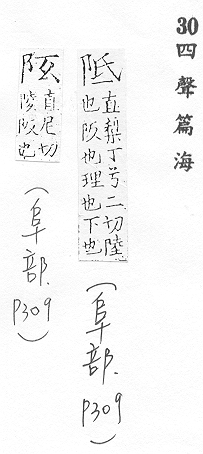 30四聲篇海
阺
直梨丁兮二切陸
也阪也理也下也
(阜部.P309)
直尼切
陵阪也
(阜部.P309)